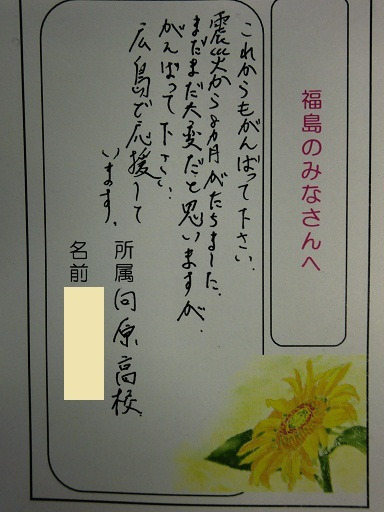 福島のみなさんへ
これからもがんばって下さい.
震災から8カ月がたちました.
まだまだ大変だと思いますが.
がんばって下さい.
広島で応援して
います.
所属 向原高校
名前